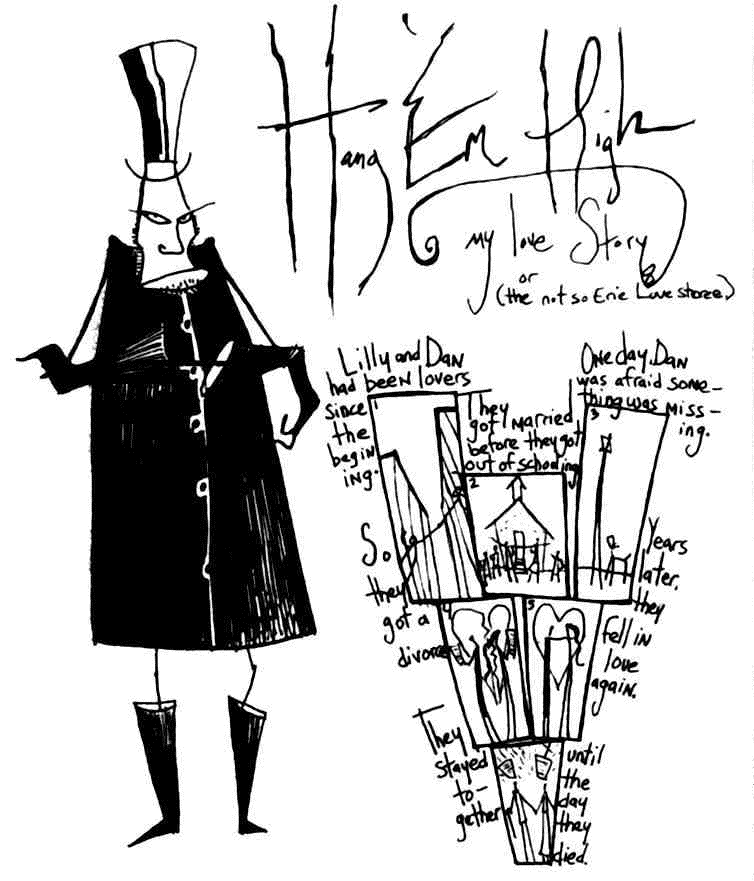 Hang 'Em High
my love Story
or
(the not so Eric Love storee.)
Lilly and Dan
had been lovers
since
the
begin
ing.
1
They
got married
before they got
out of schooling
2
One day, Dan
was afraid some-
thing was miss-
ing.
3
So
they
got a
divorce
4
Years
later,
they
fell in
love
again.
5
They
stayed
to-
gether
until
the
day
they
died.